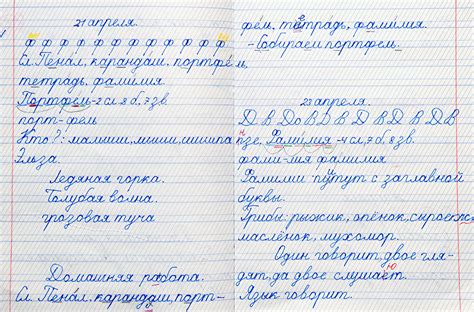 21 апреля.
ф ф ф ф ф ф ф ф ф ф ф ф
Сл. Пенал, карандаш, портфель,
тетрадь, фамилия.
Портфель-2 сл. 8 б. 7 зв.
порт-фель
Кто?: малыши, мыши, шишпа
Эльза.
Ледяная горка.
Голубая волна.
грозовая туча
Домашняя работа.
Сл. Пенал, карандаш, порт-
фель, тетрадь, фамилия
- Собираем портфель
23 апреля.
Д В До В Д В Д В Д В Д В
Фамилия - 4 сл, 7 б. 8 зв.
фами-лия фамилия
Фамилии пишут с заглавной
буквы.
Грибы: рыжик, опёнок, сыроеж
маслёнок, мухомор.
Один говорит, двое гля-
дят, да двое слушают.
Язык говорит.